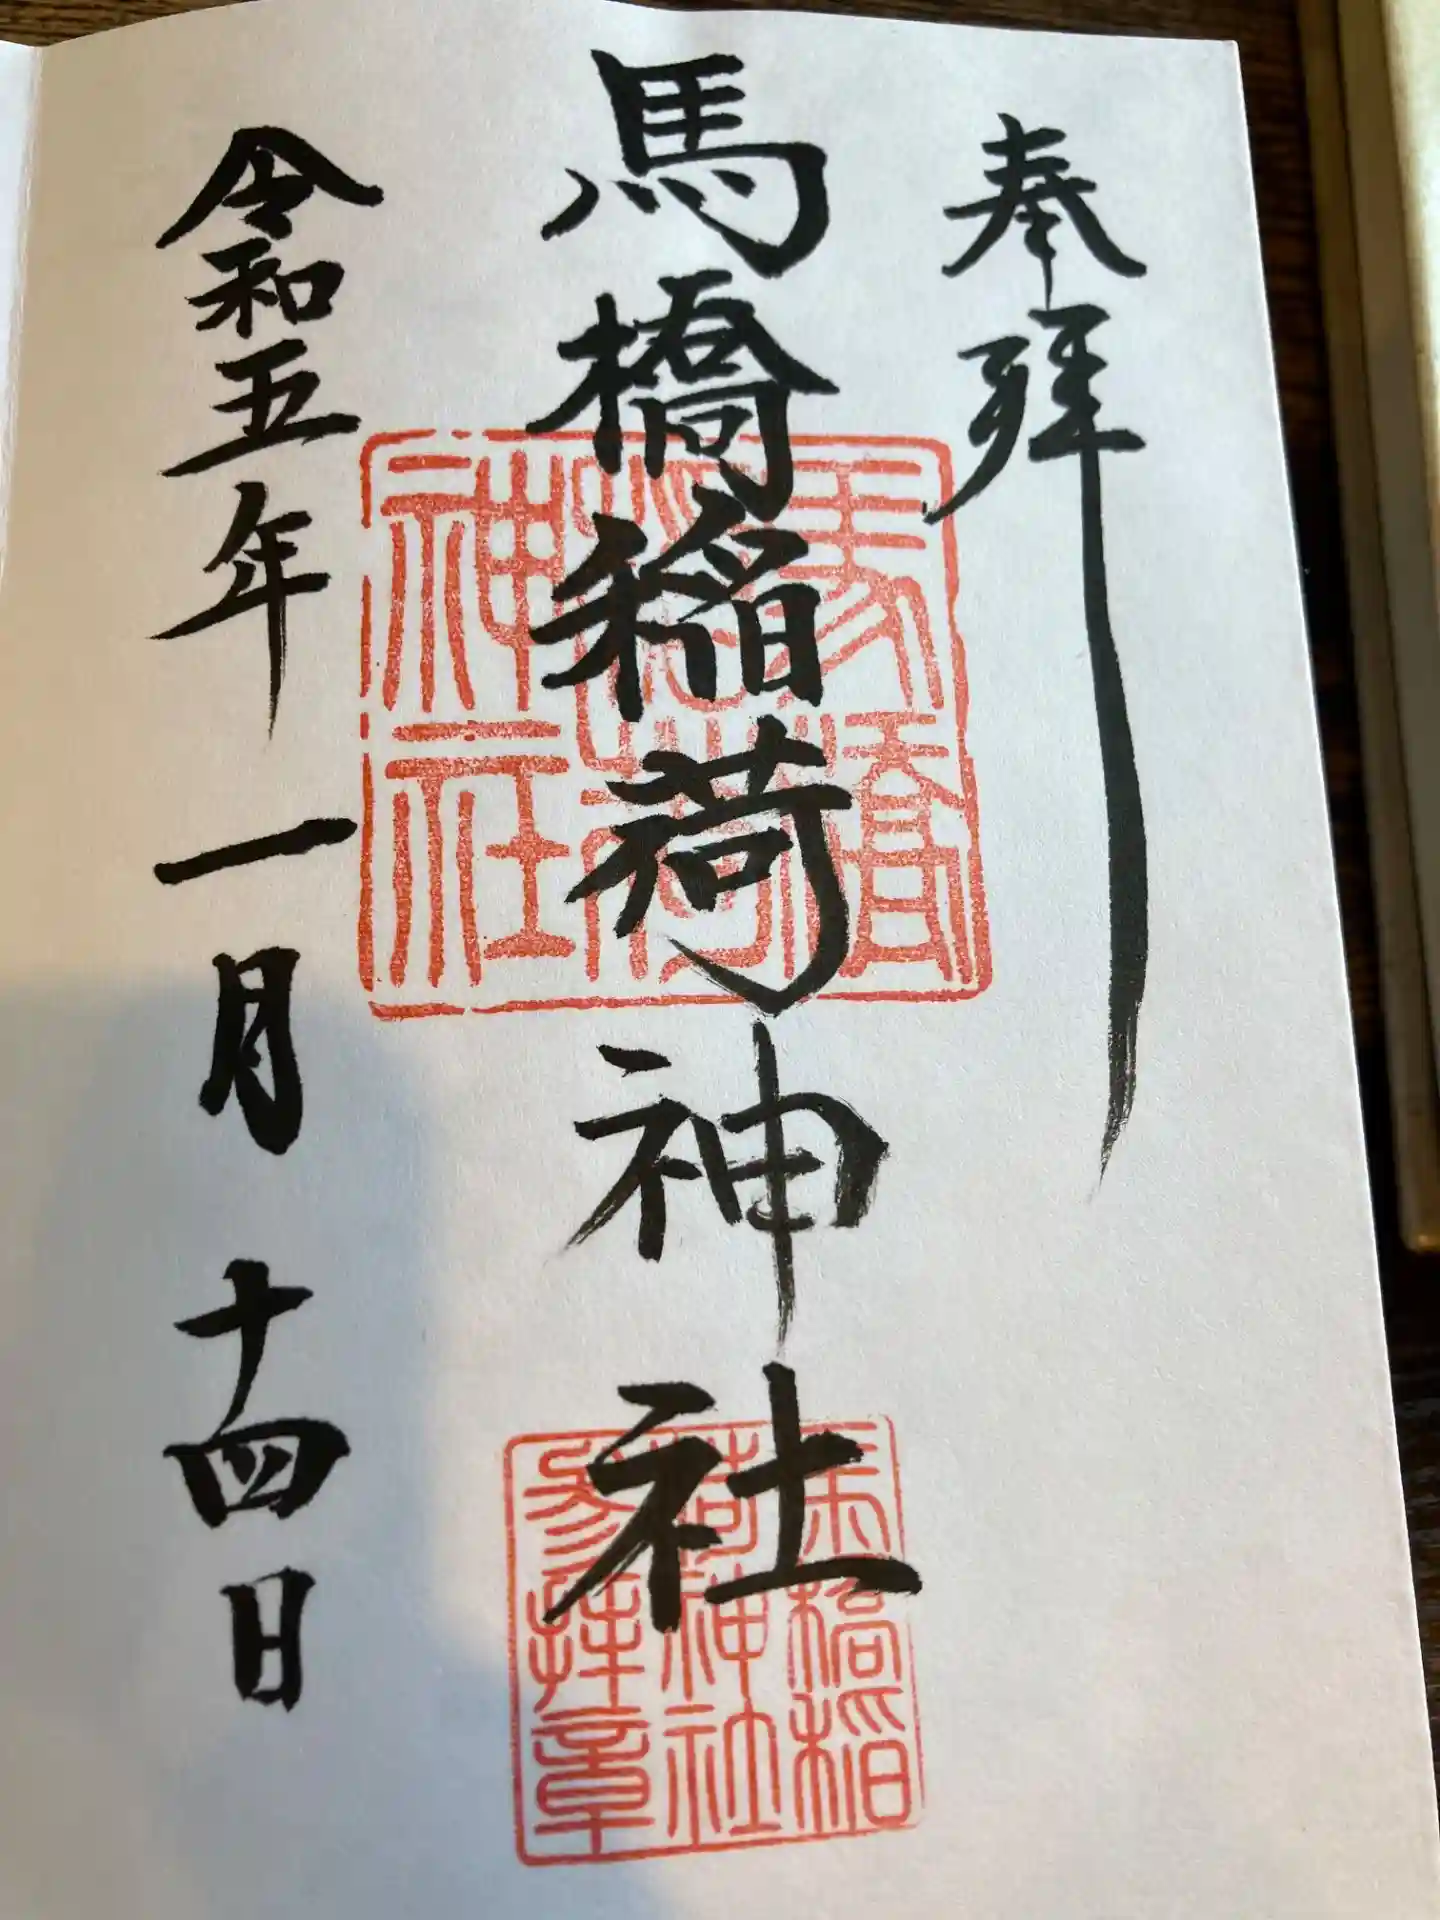 奉拝
馬橋稲荷神社
令和五年一月十四日
馬橋
稲荷
神社
馬橋稲
荷神社
参拝章